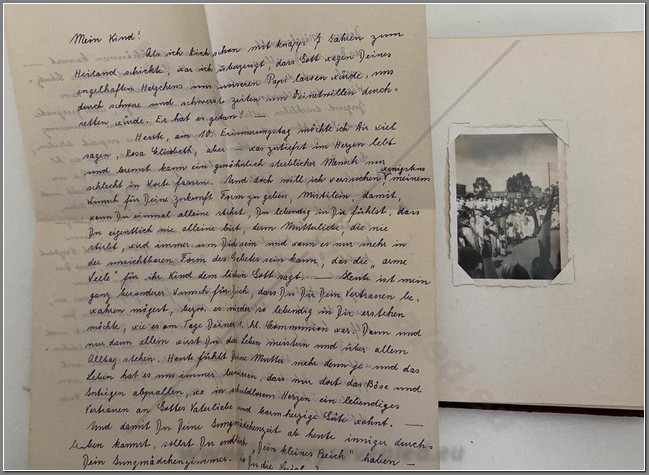 Mein Kind!
Als ich Dich schon mit knapp 7 Jahren zum
Heiland schickte, war ich überzeugt, dass Gott wegen Deines
engelhaften Herzchens uns unseren Papi lassen würde, uns
durch schwere und schwerste Zeiten um Deinetwillen durch-
retten würde. Er hat es getan! —
Heute, am 10. Erinnerungstag möchte ich Dir viel
sagen, Rosa Elisabeth, aber — was zutiefst im Herzen lebt
und brennt kann ein gewöhnlich sterblicher Mensch nur
schlecht in Worte fassen. Und doch will ich versuchen, wenigstens meinem
Wunsch für Deine Zukunft Form zu geben, damit,
wenn Du einmal alleine stehst, Du lebendig in Dir fühlst, dass
Du eigentlich nie alleine bist, denn Mutterliebe, die nie
stirbt, wird immer um Dich sein und wenn es nur mehr in
der unsichtbaren Form des Gebetes sein kann, das die „arme
Seele" für ihr Kind dem lieben Gott sagt. — Heute ist mein
ganz besonderer Wunsch für Dich, dass Du Dir Dein Vertrauen be-
wahren mögest, bezw. es wieder so lebendig in Dir erstehen
möchte, wie es am Tage Deiner 1. hl. Communion war. Dann und
nur dann allein wirst Du das Leben meistern und über allem
Alltag stehen. Heute fühlt Deine Mutter mehr denn je und das
Leben hat es uns immer bewiesen, dass nur dort das Böse und
Intrigen abprallen, wo in schuldlosem Herzen ein lebendiges
Vertrauen an Gottes Vaterliebe und barmherzige Güte wohnt. —
Und damit Du Deine Jungmädchenzeit ab heute inniger durch-
leben kannst, sollst Du endlich „Dein kleines Reich" haben —
Dein Jungmädchenzimmer.